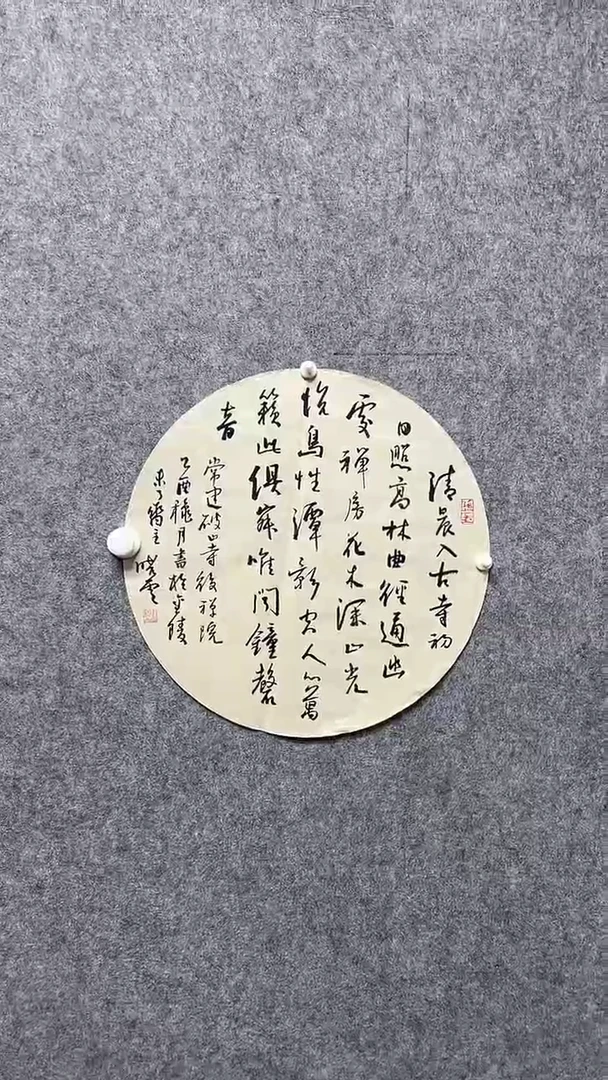 清晨入古寺初
日照高林曲徑通幽
處禪房花木深山光
悅鳥性潭影空人心萬
籟此俱寂唯聞鐘磬
音
常建破山寺後禪院
乙酉穐月書於金陵
主曉雲